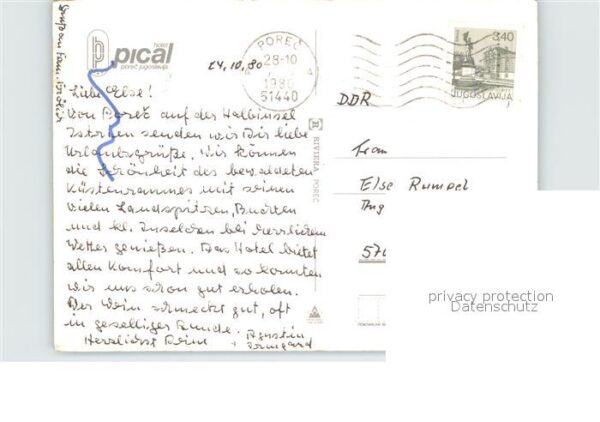 hotel
pical
poreč jugoslavija
24.10.80
POREČ
28-10
1980
51440
3,40
JUGOSLAVIJA
Liebe Else!
Von Poreč auf der Halbinsel
Istrien senden wir Dir liebe
Urlaubsgrüße. Wir können
die Schönheit des bewaldeten
Küstenraumes mit seinen
vielen Landspitzen, Buchten
und kl. Inselchen bei herrlichem
Wetter genießen. Das Hotel bietet
allen Komfort und so konnten
wir uns schon gut erholen.
Der Wein schmeckt gut, oft
in geselliger Runde.
Herzlichst Deine
+ Irmgard
Gruß an Fam.
RIVIERA POREČ
DDR
Frau
Else Rumpel
570
privacy protection
Datenschutz